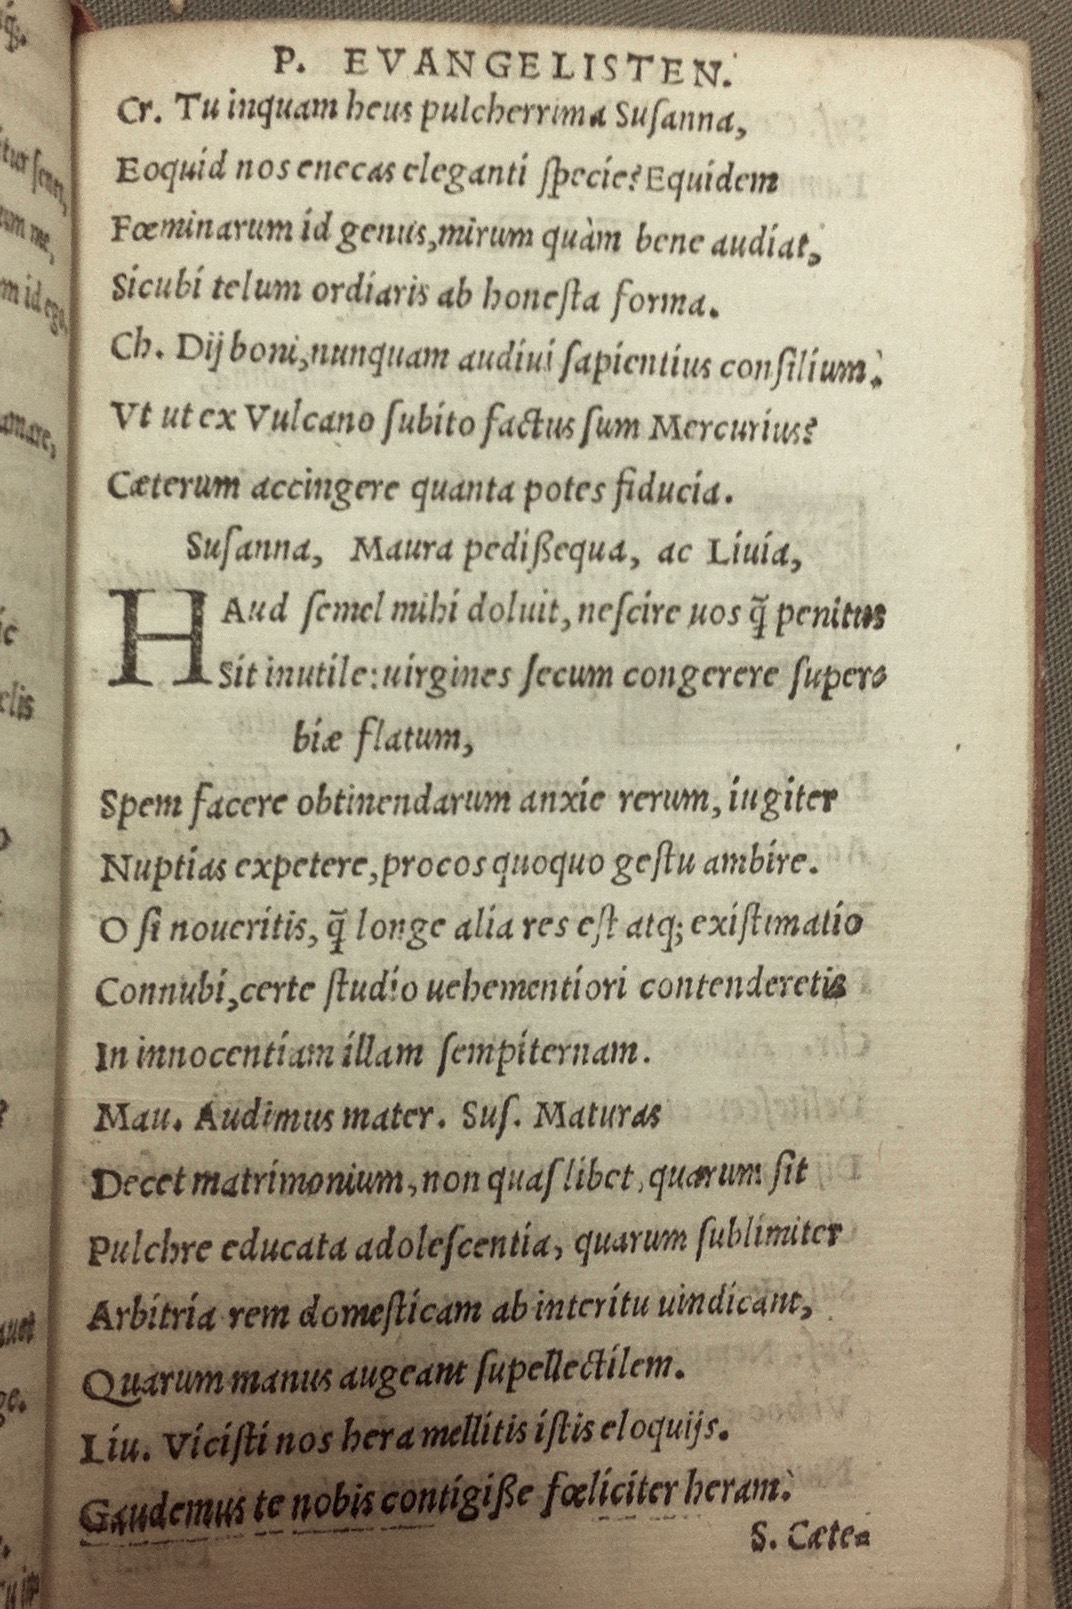 P. EVANGELISTEN.
Cr. Tu inquam heus pulcherrima Suſanna,
Eoquid nos enecas eleganti ſpecie? Equidem
Fœminarum id genus, mirum quàm bene audiat,
Sicubi telum ordiaris ab honeſta forma.
Ch. Dij boni, nunquam audiui ſapientius conſilium.
Vt ut ex Vulcano ſubito factus ſum Mercurius?
Cæterum accingere quanta potes fiducia.
Suſanna, Maura pedißequa, ac Liuia,
HAud ſemel mihi doluit, neſcire uos q̃ penitus
Sit inutile: uirgines ſecum congerere ſuper⸗
biæ flatum,
Spem facere obtinendarum anxie rerum, iugiter
Nuptias expetere, procos quoquo geſtu ambire.
O ſi noueritis, q̃ longe alia res eſt atq; exiſtimatio
Connubi, certe ſtudio uehementiori contenderetis
In innocentiam illam ſempiternam.
Mau. Audimus mater. Suſ. Maturas
Decet matrimonium, non quaſ libet, quarum ſit
Pulchre educata adoleſcentia, quarum ſublimiter
Arbitria rem domeſticam ab interitu uindicant,
Quarum manus augeant ſupellectilem.
Liu. Viciſti nos hera mellitis iſtis eloquijs.
Gaudemus te nobis contigiße fœliciter heram.
S. Cæte⸗